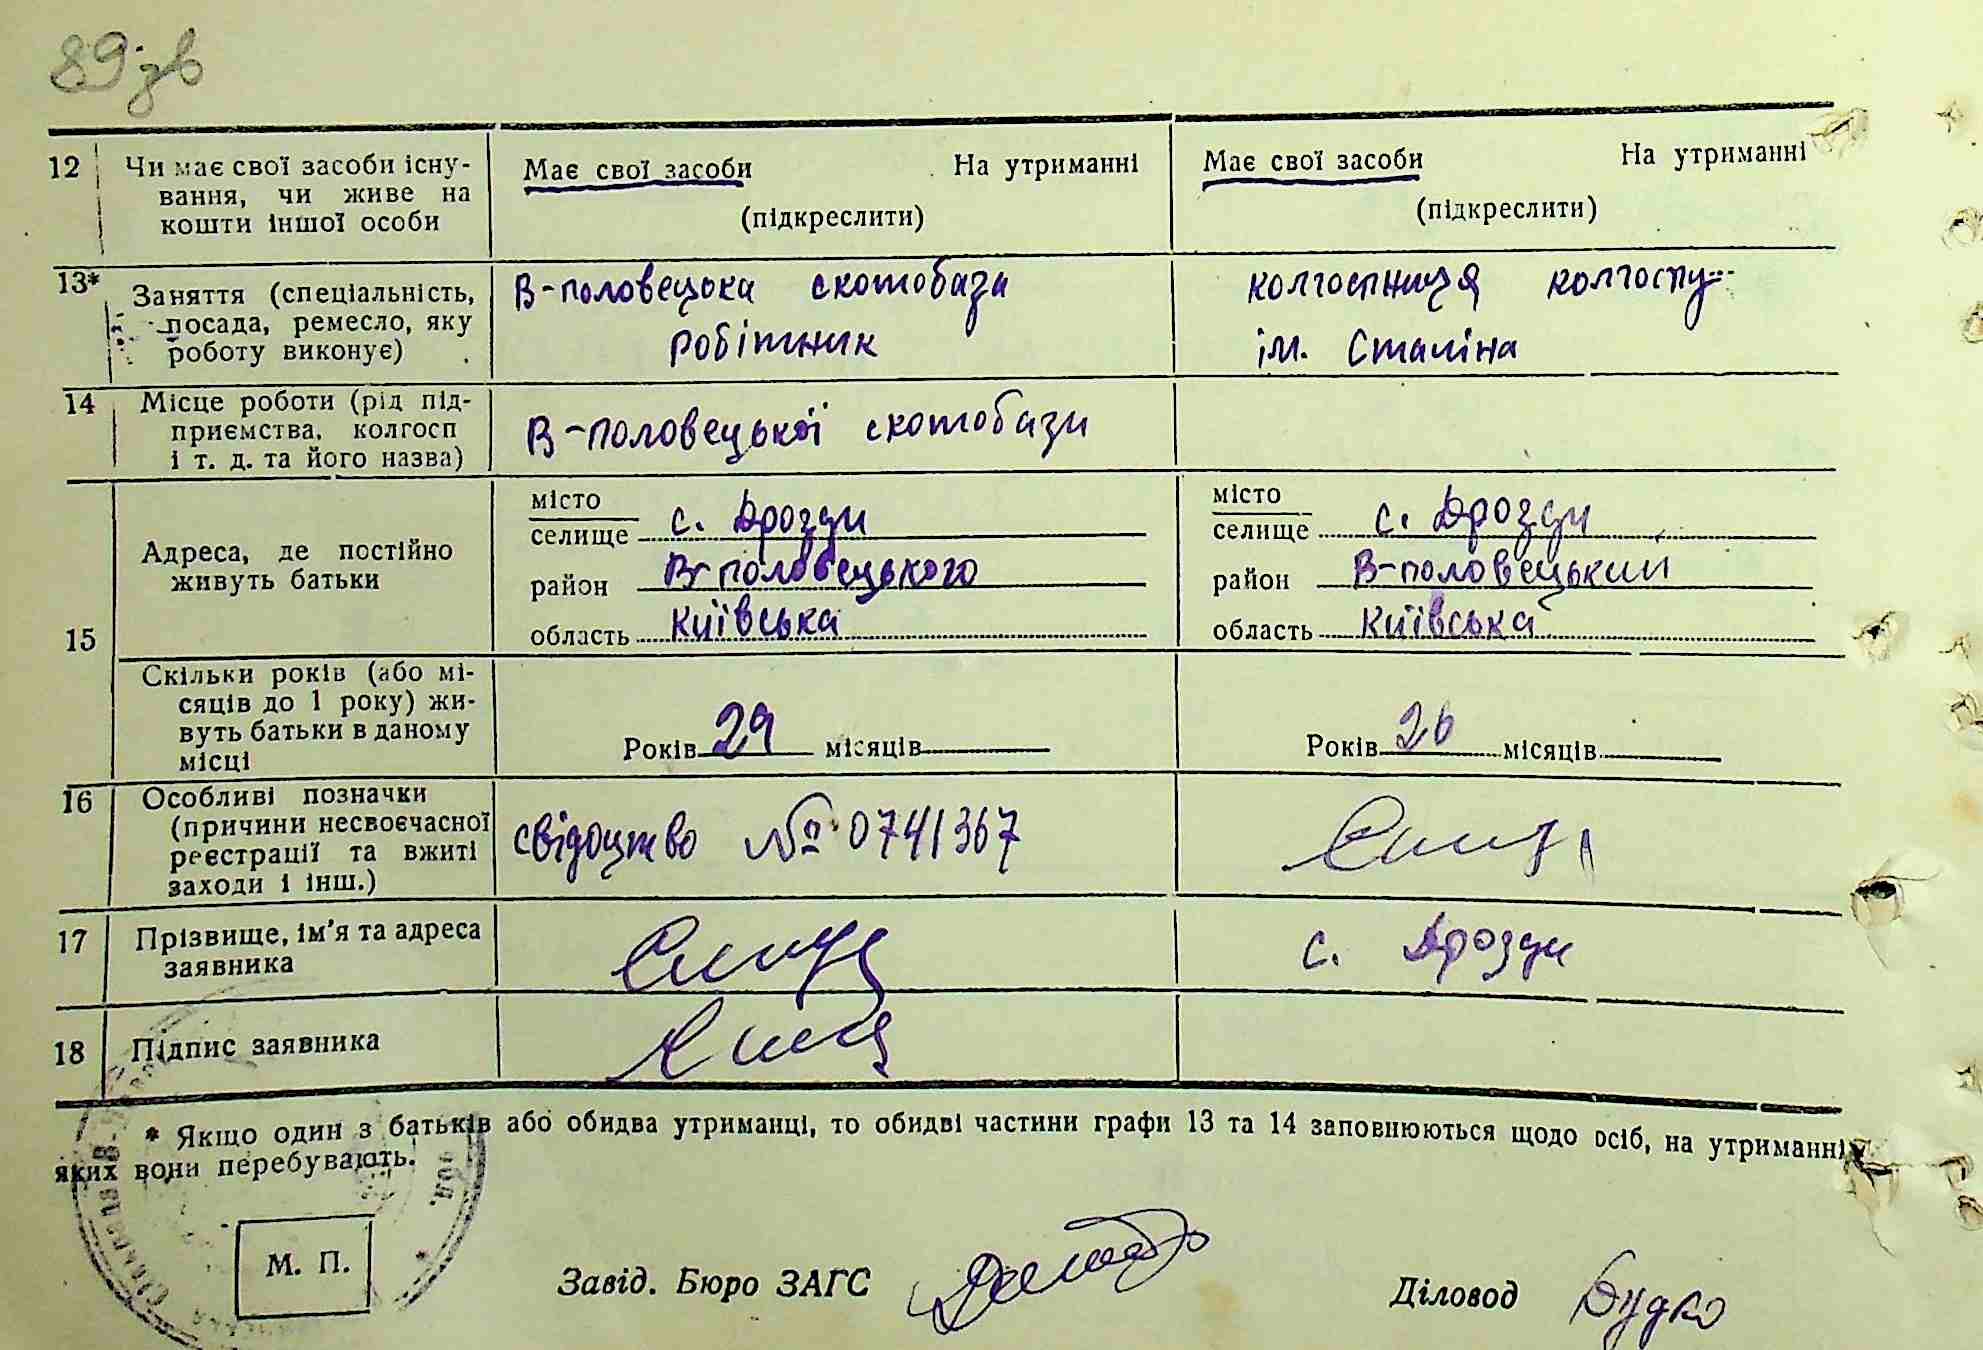 89 зв
12 Чи має свої засоби існу- Має свої засоби На утриманні Має свої засоби На утриманні
вання, чи живе на
кошти іншої особи (підкреслити) (підкреслити)
13* Заняття (спеціальність, В-половецька скотобаза колгоспниця колгоспу
посада, ремесло, яку
роботу виконує) робітник ім. Сталіна
14 Місце роботи (рід під-
приємства, колгосп В-половецької скотобази
і т. д. та його назва)
15 Адреса, де постійно
живуть батьки
місто місто
селище с. Дрозди селище с. Дрозди
район В-половецького район В-половецький
область Київська область Київська
Скільки років (або мі-
сяців до 1 року) жи-
вуть батьки в даному
місці
Років 29 місяців Років 26 місяців
16 Особливі позначки
(причини несвоєчасної
реєстрації та вжиті
заходи і інш.)
свідоцтво № 0741367
17 Прізвище, ім'я та адреса
заявника
с. Дрозди
18 Підпис заявника
* Якщо один з батьків або обидва утриманці, то обидві частини графи 13 та 14 заповнюються щодо осіб, на утриманні
яких вони перебувають.
М. П.
Завід. Бюро ЗАГС
Діловод Будко